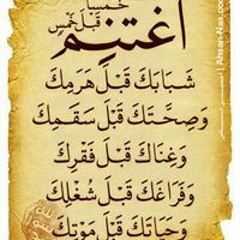 اغتنم خمسا
قبل خمس
شَبَابَكَ قَبْلَ هَرَمِكَ
وَصِحَّتَكَ قَبْلَ سَقَمِكَ
وَغِنَاكَ قَبْلَ فَقْرِكَ
وَفَرَاغَكَ قَبْلَ شُغْلِكَ
وَحَيَاتَكَ قَبْلَ مَوْتِكَ
Ahsan-Nas.com